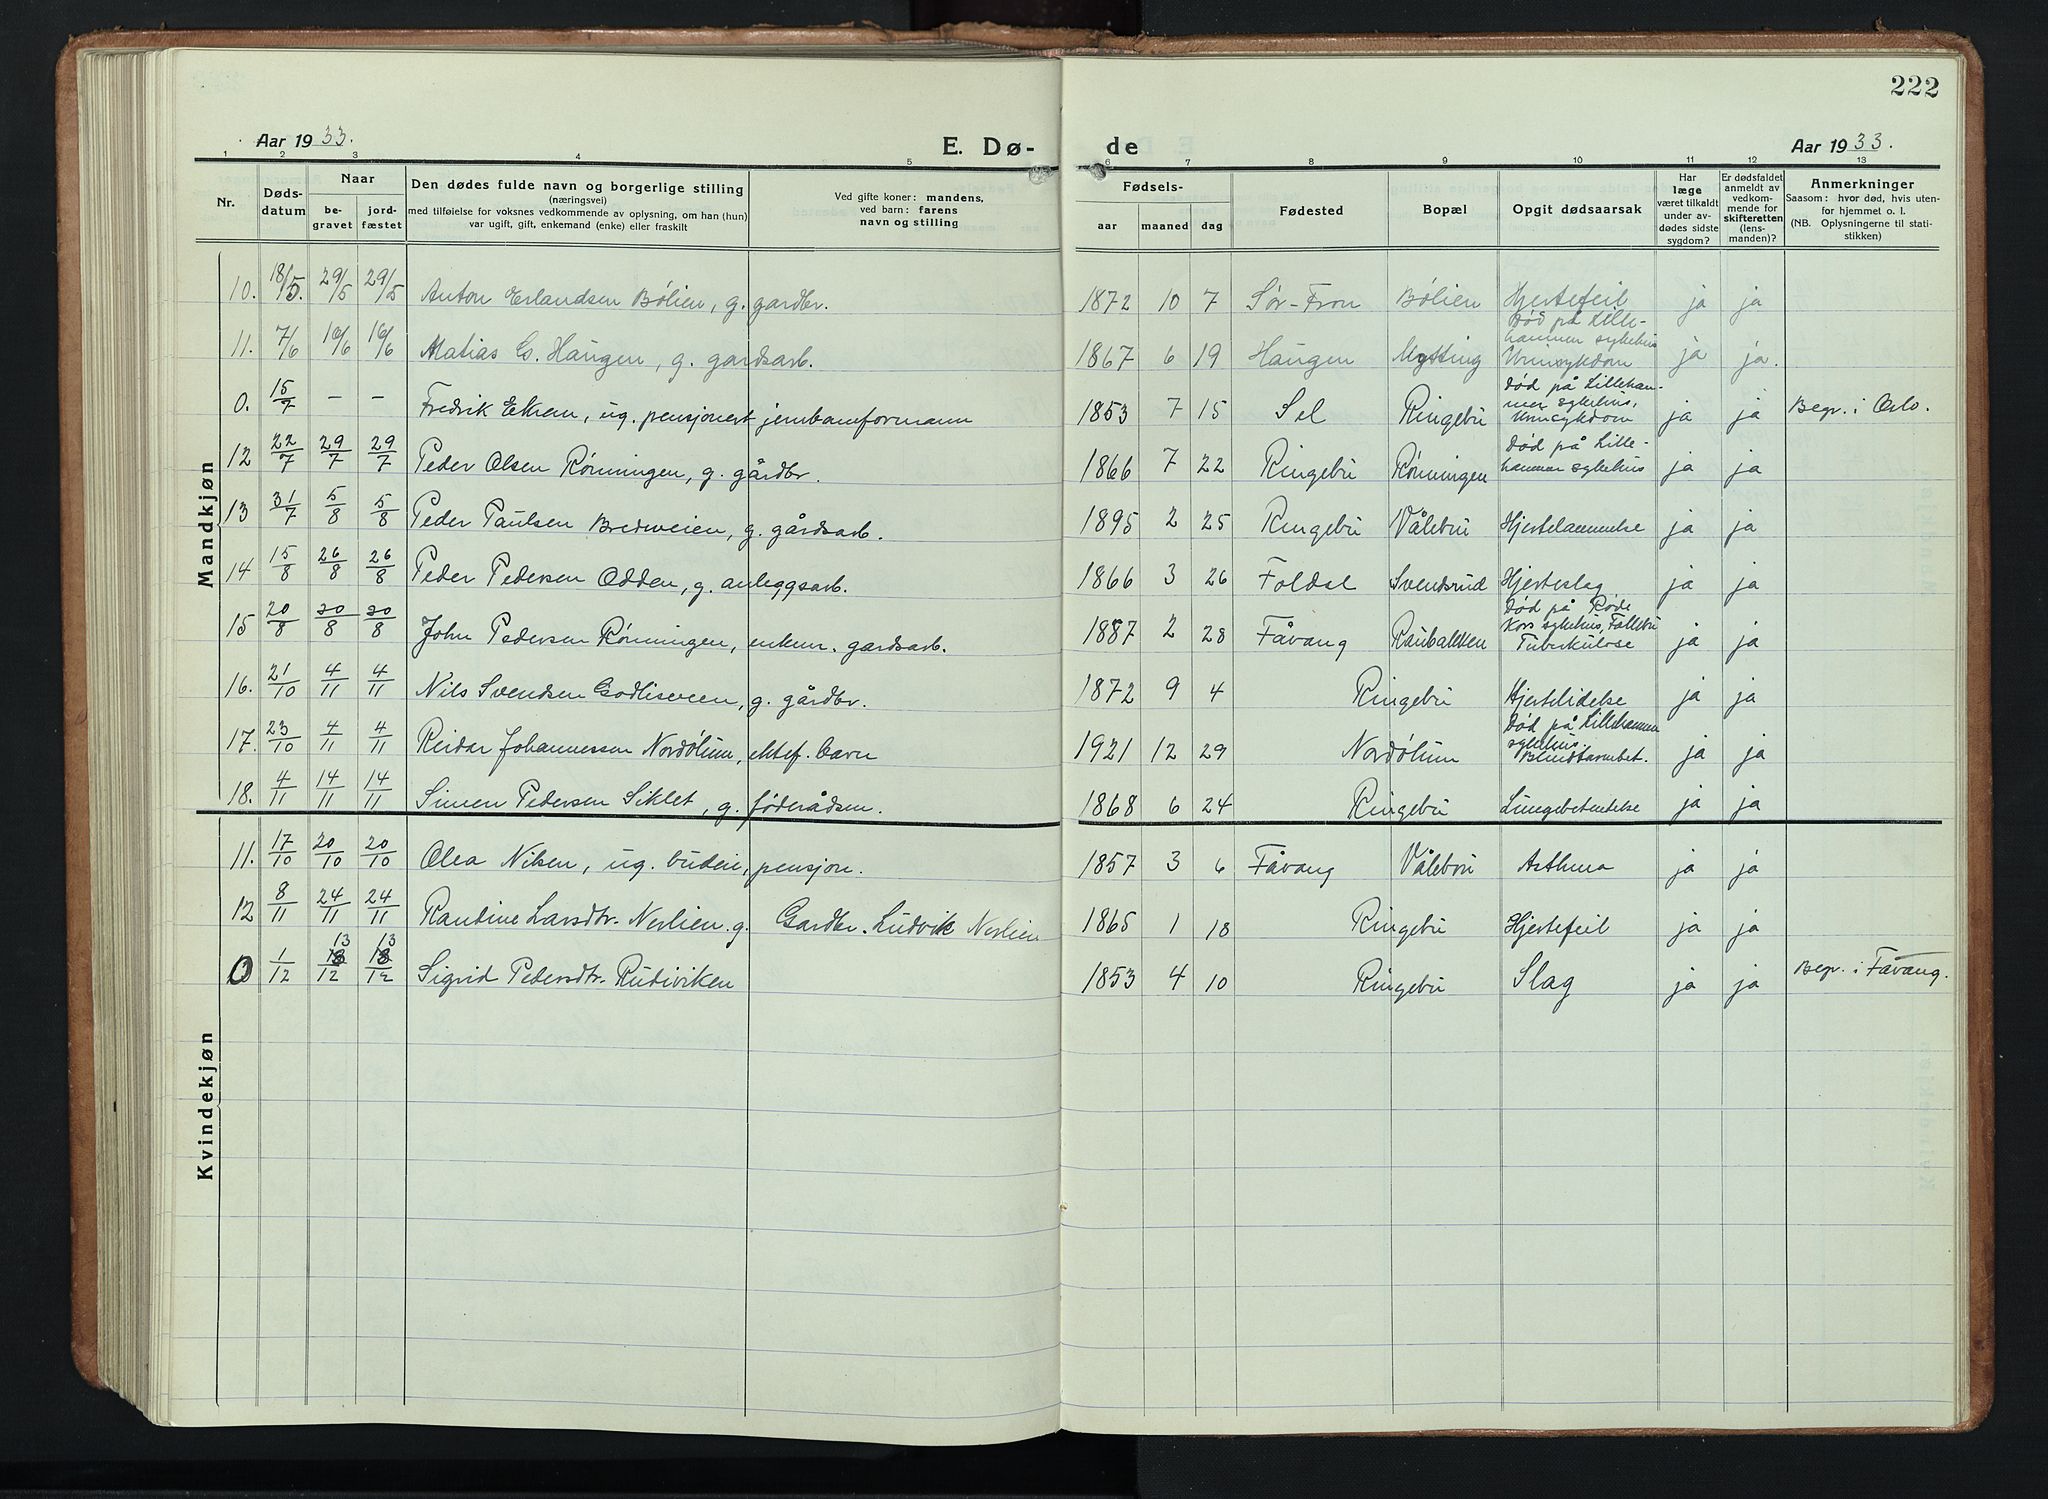 222
Aar 1933.
E. Dø-
de
Aar 1933.
1 2 3 4 5 6 7 8 9 10 11 12 13
Nr.
Døds-
datum
Naar
be-
gravet
jord-
fæstet
Den dødes fulde navn og borgerlige stilling
(næringsvei)
med tilføielse for voksnes vedkommende av oplysning, om han (hun)
var ugift, gift, enkemand (enke) eller fraskilt
Ved gifte koner: mandens,
ved barn: farens
navn og stilling
Fødsels-
aar
maaned
dag
Fødested
Bopæl
Opgit dødsaarsak
Har
læge
været tilkaldt
under av-
dødes sidste
sygdom?
Er dødsfaldet
anmeldt av
vedkom-
mende for
skifteretten
(lens-
manden)?
Anmerkninger
Saasom: hvor død, hvis uten-
for hjemmet o. l.
(NB. Oplysningerne til stati-
stikken)
Mandkjøn
10. 18/5. 29/5 29/5 Anton Erlandsen Bølien, g. gardbr. 1872 10 7 Sør-Fron Bølien Hjertefeil ja ja
11. 7/6 16/6 16/6 Matias G. Haugen, g. gardsarb. 1867 6 19 Haugen Mytting Død på Lille-
hammer sykehus
Urinsykdom ja ja.
0. 15/7 – – Fredrik Ekren, ug. pensjonert jernbaneformann 1853 7 15 Sel Ringebu Død på Lilleham-
mer sykehus,
Urinsykdom ja ja Begr. i Oslo.
12 22/7 29/7 29/7 Peder Olsen Rønningen, g. gårdbr. 1866 7 22 Ringebu Rønningen Død på Lille-
hammer sykehus ja ja
13 31/7 5/8 5/8 Peder Paulsen Bredeveien, g. gårdsarb. 1895 2 25 Ringebu Vålebru Hjertelammelse ja ja
14 15/8 26/8 26/8 Peder Pedersen Odden, g. anleggsarb. 1866 3 26 Foldal Svendsrud Hjerteslag ja ja
15 20/8 30/8 30/8 John Pedersen Rønningen, enkem. gardsarb. 1887 2 28 Fåvang Raubakken Død på Røde
Kors sykehus, Follebu
Tuberkulose ja ja
16. 21/10 4/11 4/11 Nils Svendsen Godlisveen, g. gårdbr. 1872 9 4 Ringebu Hjertelidelse ja ja
17. 23/10 4/11 4/11 Reidar Johannessen Nordølum, ektef. barn 1921 12 29 Nordølum Død på Lillehammer
sykehus.
Blindtarmbet. ja ja
18. 4/11 14/11 14/11 Simen Pedersen Siklet, g. føderådsm. 1868 6 24 Ringebu Lungebetendelse ja ja
Kvindekjøn
11. 17/10 20/10 20/10 Olea Nilsen, ug. budeie, pensjon. 1857 3 6 Fåvang Vålebru Asthma ja ja
12 8/11 24/11 24/11 Randine Larsdtr. Nerlien. g. Gardbr. Ludvik Nerlien 1865 1 18 Ringebu Hjertefeil ja ja
0 1/12 13/12 13/12 Sigrid Pedersdtr. Rudiviken 1853 4 10 Ringebu Slag ja ja Begr. i Fåvang.